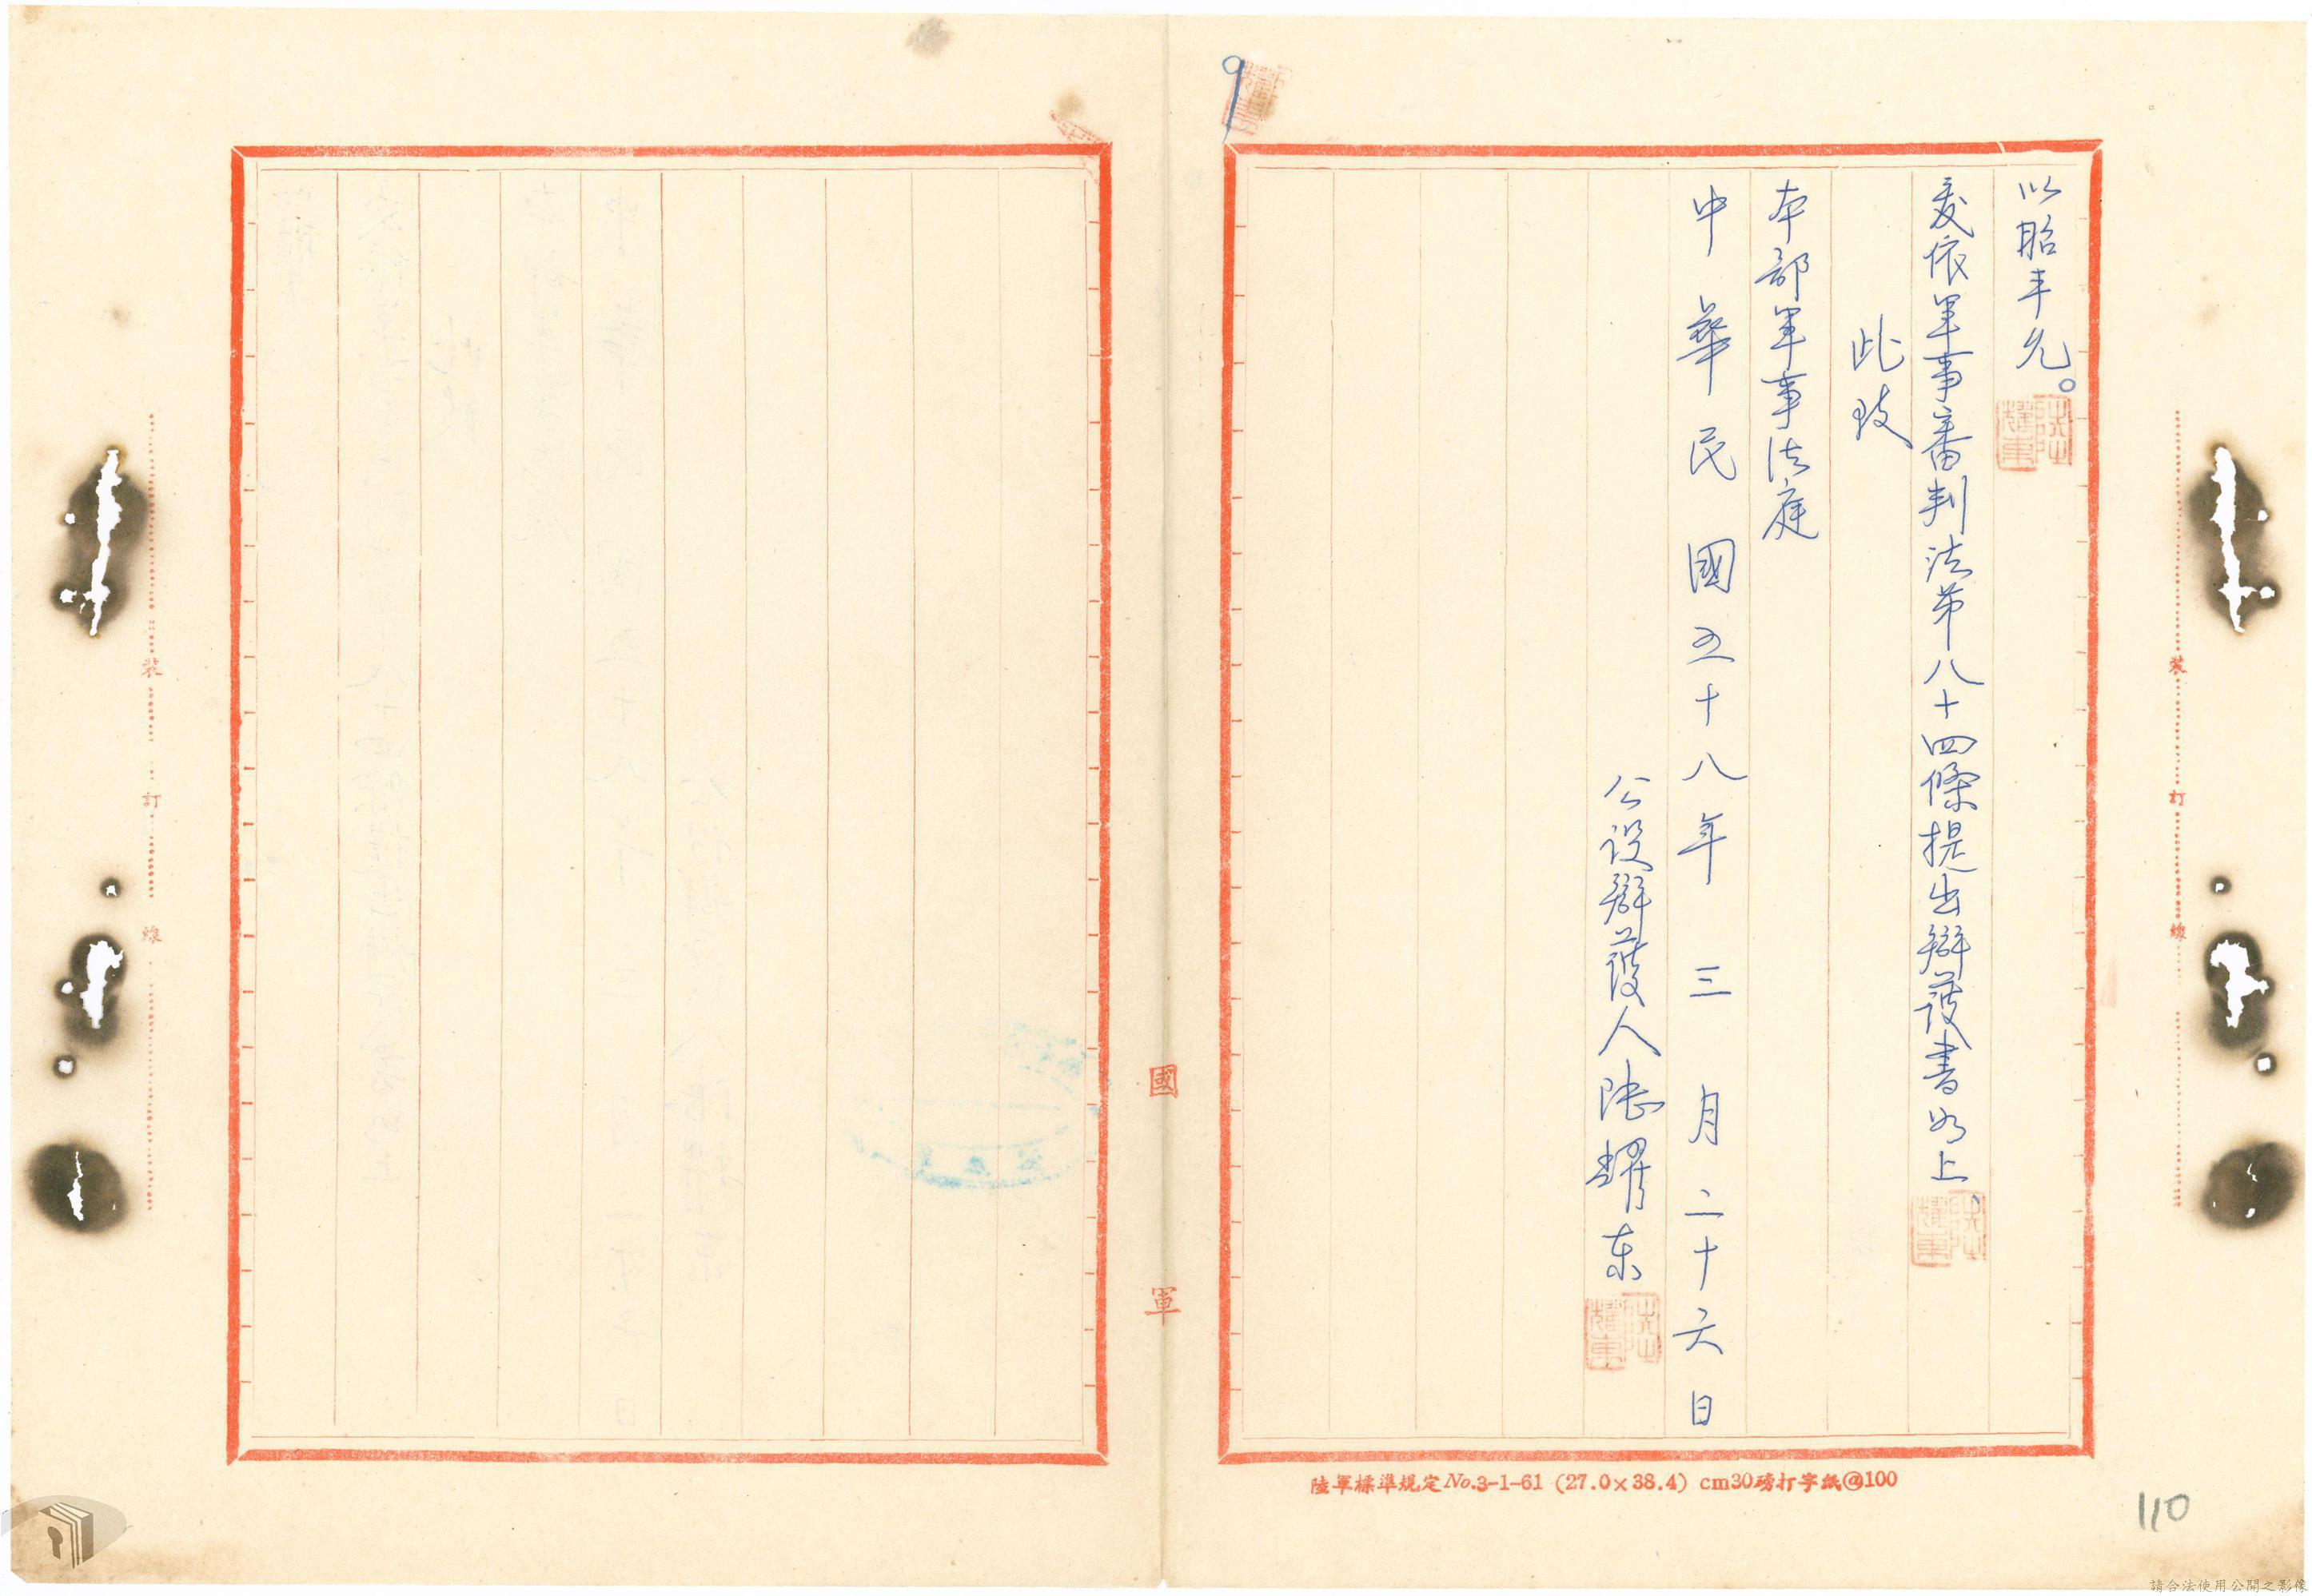 以昭平允。
爰依軍事審判法第八十四條提出辯護書如上
此致
本部軍事法庭
中華民國五十八年三月二十六日
公設辯護人陸耀东
陸耀東
陸耀東
陸耀東
裝訂線
裝訂線
國軍
陸軍標準規定No.3-1-61 (27.0×38.4) cm30磅打字紙@100
110
請合法使用公開之影像